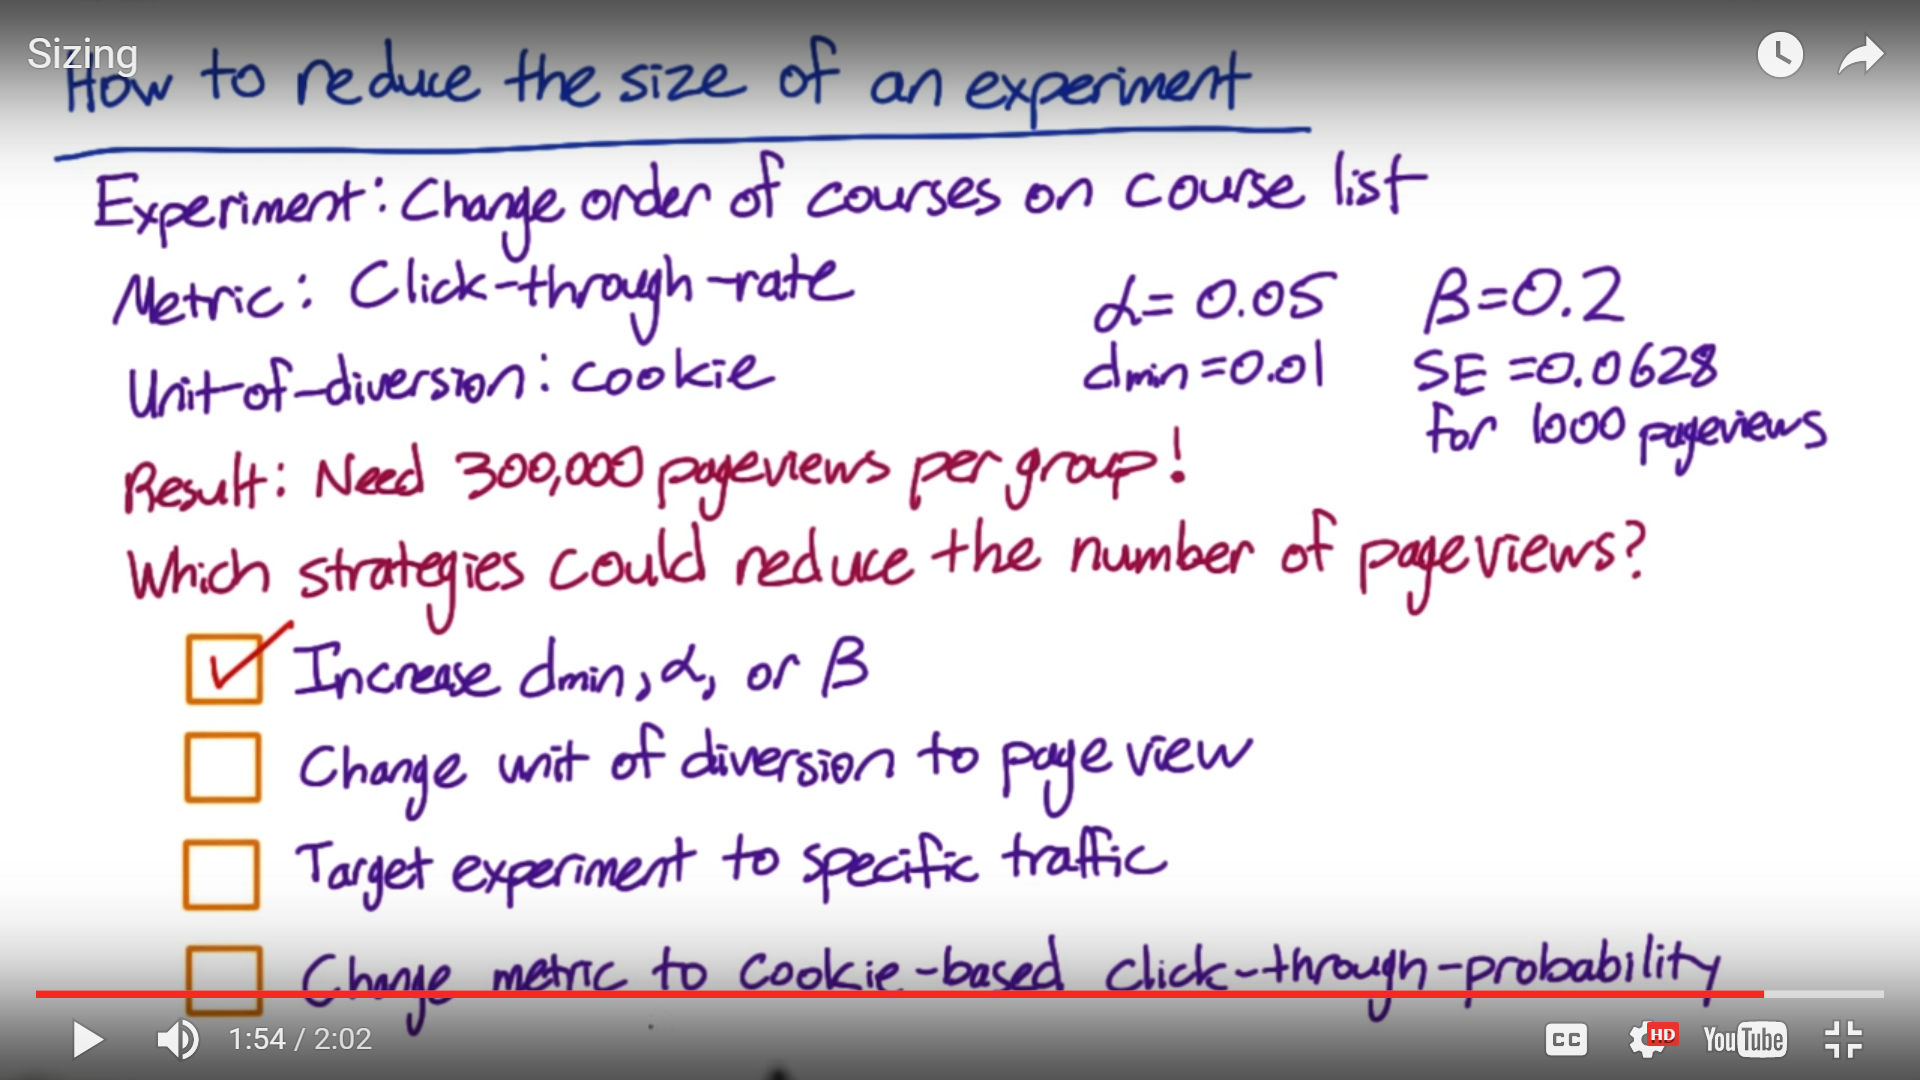 Sizing
How to reduce the size of an experiment
Experiment: Change order of courses on course list
Metric: Click-through-rate
α = 0.05 β = 0.2
Unit-of-diversion: cookie
dmin = 0.01 SE = 0.0628
for 1000 pageviews
Result: Need 300,000 pageviews per group!
Which strategies could reduce the number of pageviews?
Increase dmin, α, or β
Change unit of diversion to page view
Target experiment to specific traffic
Change metric to cookie-based click-through-probability
1:54 / 2:02
CC HD YouTube